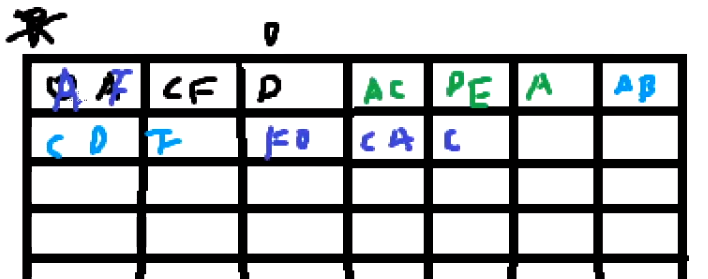 D
A F CF D AC DE A AB
C D F FD CA C